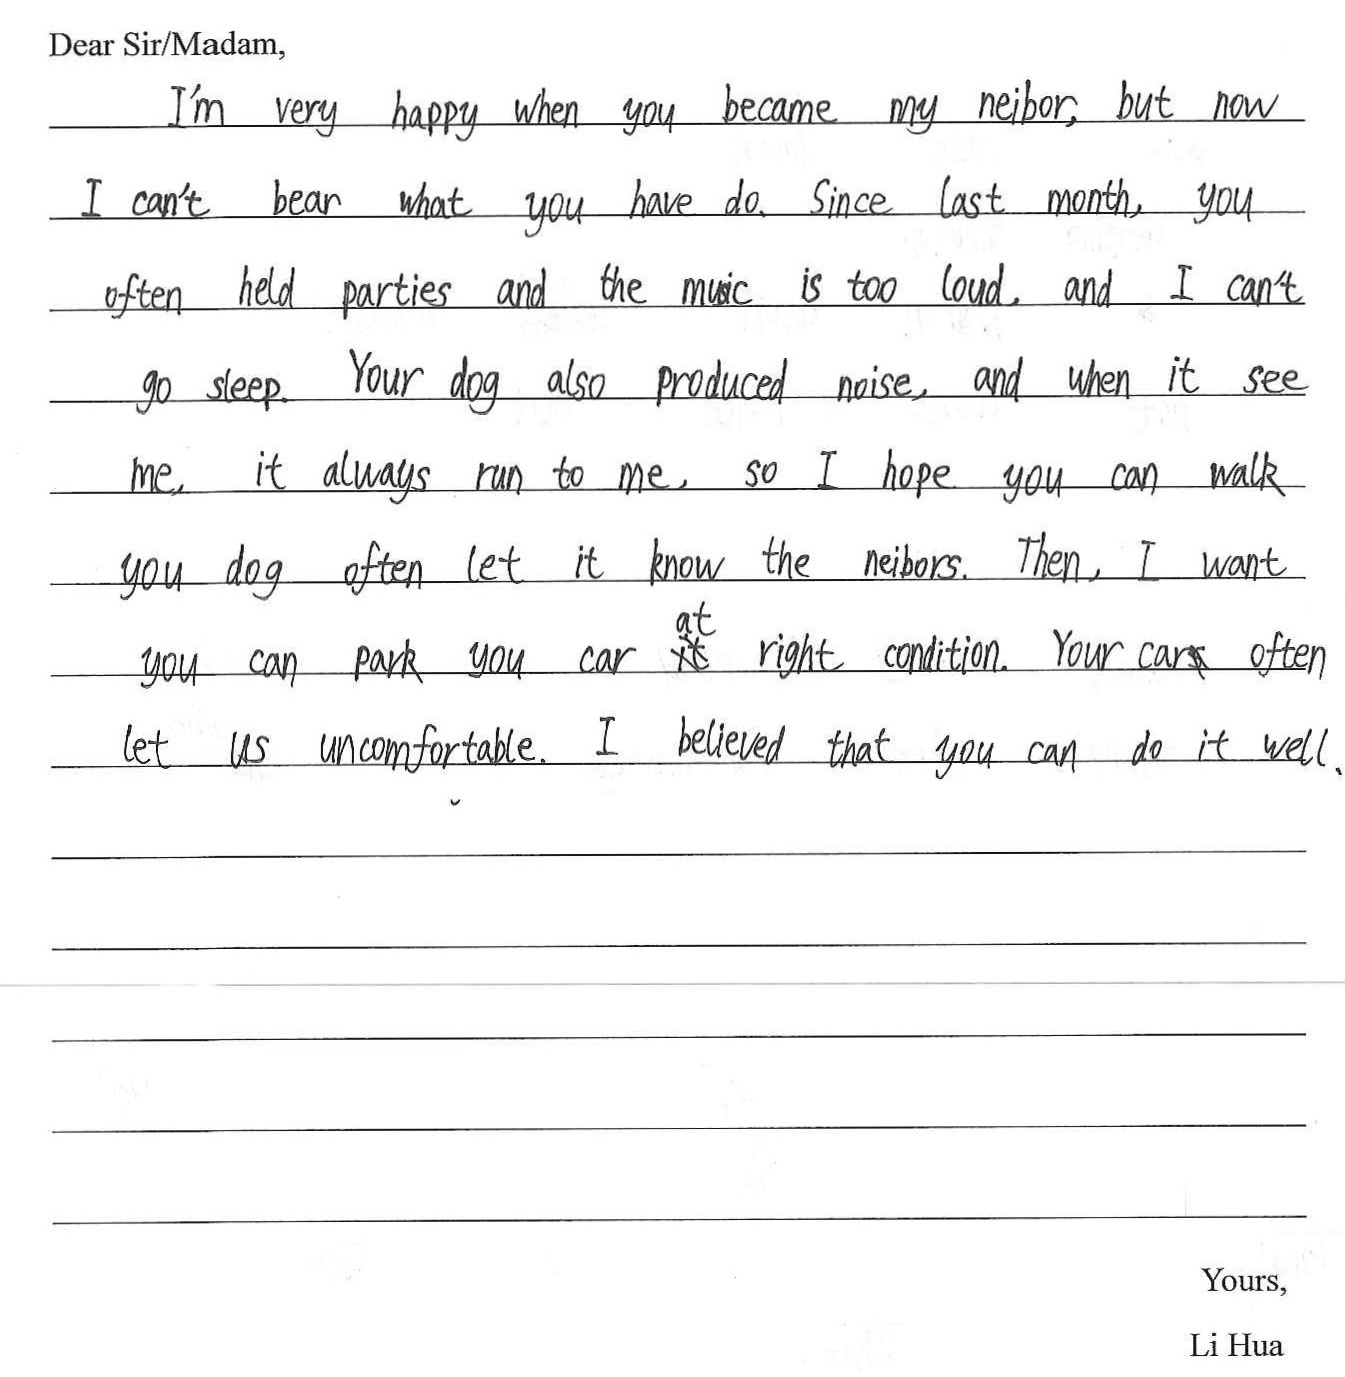 Dear Sir/Madam,
I'm very happy when you became my neibor, but now
I can't bear what you have do. Since last month, you
often held parties and the music is too loud, and I can't
go sleep. Your dog also produced noise, and when it see
me, it always run to me, so I hope you can walk
you dog often let it know the neibors. Then, I want
you can park you car at right condition. Your car often
let us uncomfortable. I believed that you can do it well.
Yours,
Li Hua